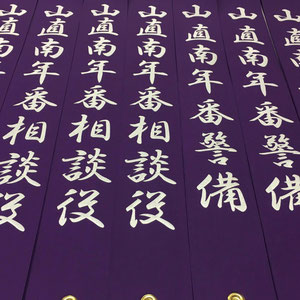 山直南年番警備
山直南年番警備
山直南年番警備
山直南年番相談役
山直南年番相談役
山直南年番相談役
山直南年番相談役